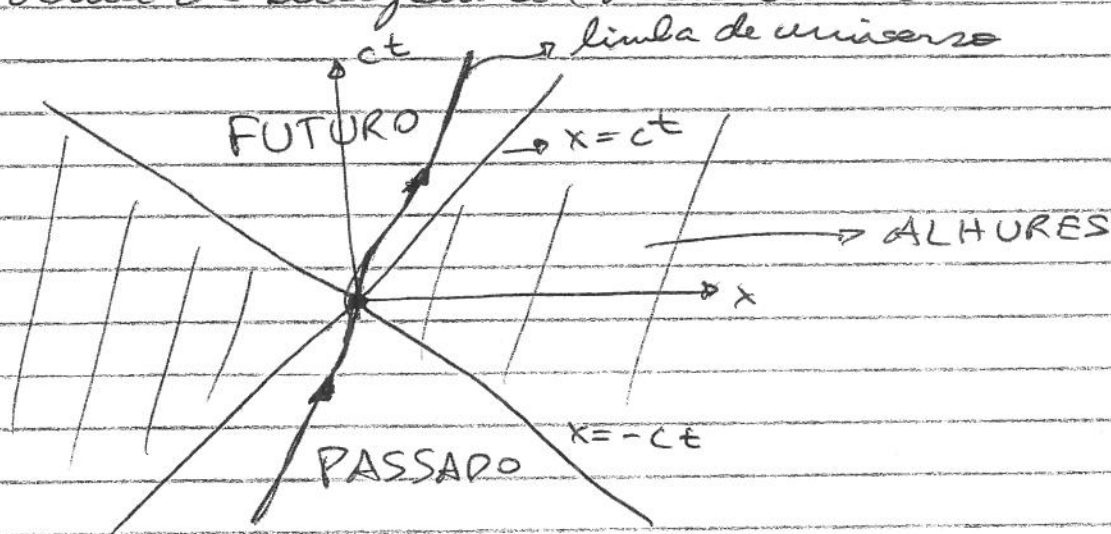 ct
linha de universo
FUTURO
x = ct
ALHURES
x
x = -ct
PASSADO